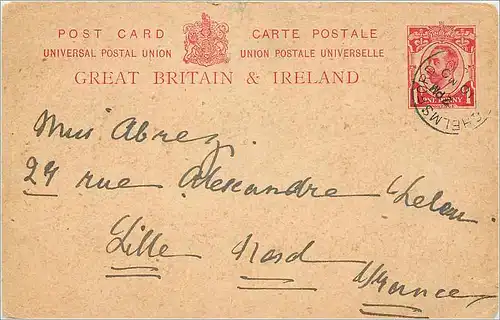 POST CARD CARTE POSTALE
UNIVERSAL POSTAL UNION UNION POSTALE UNIVERSELLE
GREAT BRITAIN & IRELAND
ONE PENNY
CHELMSFORD
PM
Miss Abrez.
24 rue Alexandre Leleu
Lille Nord
France